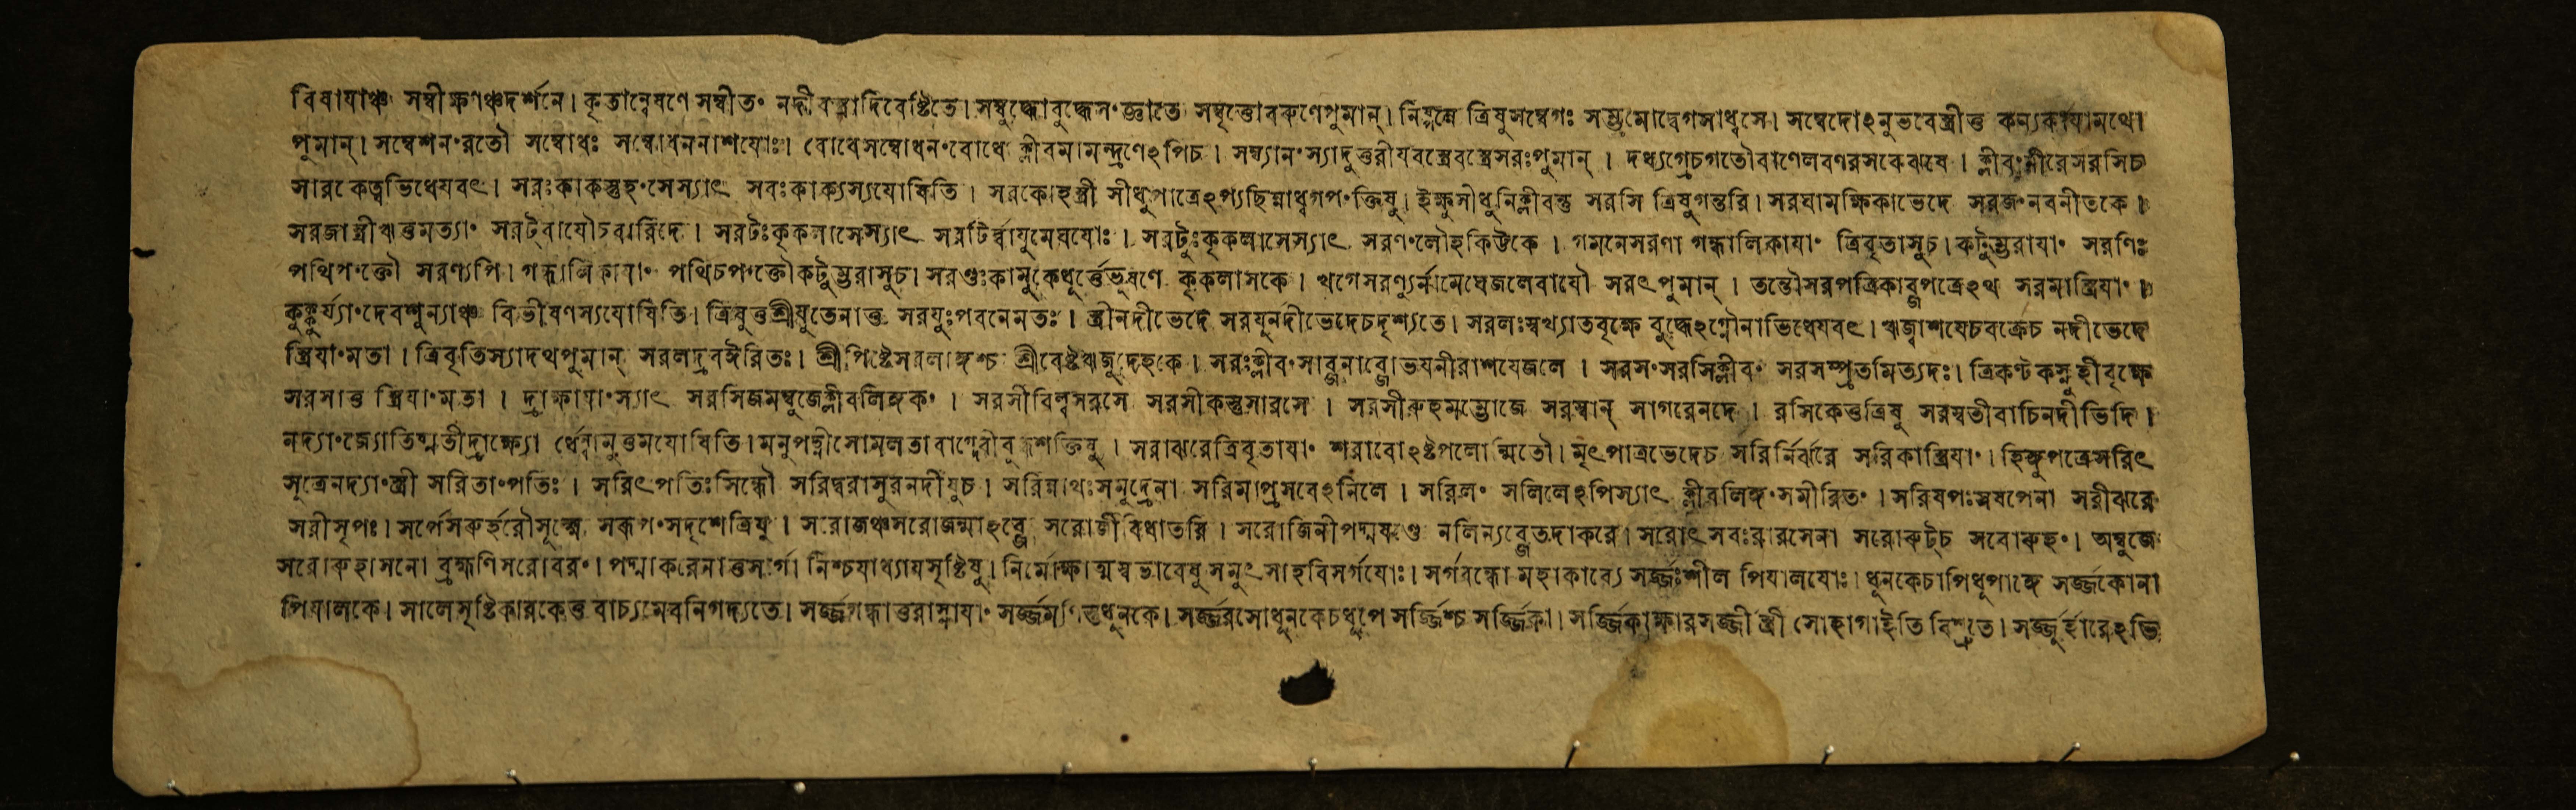 বিবাযাঞ্চ সম্বীক্ষণঞ্চদর্শনে। কৃতান্বেষণে সম্বীত॰ নদীবস্ত্রাদিবেষ্টিতে। সম্বুদ্ধোবুদ্ধেস॰জ্ঞাতে সম্বৃত্তোবরুণেপুমান্। ত্রিষুসম্বেগঃ সম্ভ্রমোদ্বেগসাধ্বসে। সম্বেদোঽনুভবেস্ত্রীত্ত
পুমান্। সম্বেশন॰রতৌ সম্বোধঃ সম্বোধননাশযোঃ। বোধেসম্বোধন॰বোধে ক্লীবমামন্ত্রণেঽপিচ। সম্ব্যান॰স্যাদুত্তরীযবস্ত্রেবস্ত্রেসরঃপুমান্। দধ্যগ্রেচগতৌবাণেলবণরসকেঝষে। ক্লীব॰নীরেসরসিচ
সারকেত্বভিধেযবৎ। সরঃকাকস্তুহ॰সেস্যাৎ সবঃকাক্যস্যযোষিতি। সরকোহস্ত্রী সীধুপাত্রেঽপ্যছিন্নাধ্বগপ॰ক্তিষু। ইক্ষুসীধুনিক্লীবন্তু সরসি ত্রিষুগন্তরি। সরঘামক্ষিকাভেদে সরজ॰নবনীতকে।
সরজাস্ত্রীঋত্তমত্যা॰ সরট্বাযৌচবারিদে। সরটঃকৃকলাসেস্যাৎ সরটির্ব্বাযুমেঘযোঃ। সরটুঃকৃকলাসেস্যাৎ সরণ॰লৌহকিট্টকে। গমনেসরণা গন্ধালিকাযা॰ ত্রিবৃতাসুচ। কটুম্ভরাযা॰ সরণিঃ
পথিপ॰ক্তৌ সরণ্যপি। গন্ধালিকাযা॰ পথিচপ॰ক্তৌকটুম্ভরাসুচ। সরণ্ডঃকামুকেধূর্ত্তেভূষণে কৃকলাসকে। খগেসরণ্যুর্নামেঘেজলেবাযৌ সরৎপুমান্। তন্তৌসরপত্রিকাব্জপত্রেঽথ সরমাস্ত্রিযা॰।
কুক্কুর্য্যা॰দেবশুন্যাঞ্চ বিভীষণস্যযোষিতি। ত্রিষুত্তশ্রীযুতেনাত্ত সরযুঃপবনেমতঃ। স্ত্রীনদীভেদে সরযূনদীভেদেচদৃশ্যতে। সরলঃস্বখ্যাতবৃক্ষে বুদ্ধেঽগ্নৌনাভিধেযবৎ। ঋজ্বাশযেচবক্রেচ নদীভেদে
স্ত্রিযা॰মতা। ত্রিবৃতিস্যাদথপুমান্ সরলদ্রবঈরিতঃ। শ্রীপিষ্টেসরলাঙ্গশ্চ শ্রীবেষ্টঋজুদেহকে। সরঃক্লীব॰ সরস॰সরসিক্লীব॰ সরসম্প্রতমিত্যদঃ। ত্রিকণ্টকস্নুহীবৃক্ষে
সরসাত্ত স্ত্রিযা॰মতা। দ্রাক্ষাযা॰স্যাৎ সরসিজমম্বুজেক্লীবলিঙ্গক॰। সরসীবিল্বসরসে সরসীকস্তুসারসে। সরসীরুহমম্ভোজে সরস্বান্ সাগরেনদে। রসিকেত্তত্রিষু সরস্বতীবাচিনদীভিদি।
নদ্যা॰জ্যোতিষ্মতীদ্রাক্ষ্যো মনুপত্নীসোমলতা সরাঝরেত্রিবৃতাযা॰ শরাবোঽষ্টপলোন্মিতৌ। মৃৎপাত্রভেদেচ সরির্নির্ঝরে সরিকাস্ত্রিযা॰। হিঙ্গুপত্রেসরিৎ
সূত্রেনদ্যা॰স্ত্রী সরিতা॰পতিঃ। সরিৎপতিঃসিন্ধৌ সরিদ্বরাসুরনদীযুচ। সরিন্নাথঃসমুদ্রেনা সরিমাপ্রসবেঽনিলে। সরিল॰ সলিলেঽপিস্যাৎ ক্লীবলিঙ্গ॰সমীরিত॰। সরীঝরে
সরীসৃপঃ। সর্পেসরুর্হরৌসূক্ষ্মে সরূপ॰সদৃশেত্রিষু। সরোজঞ্চসরোজন্মাঽব্জে সরোজীবিধাতরি। সরোজিনীপদ্মষণ্ডে নলিন্যব্জেতদাকরে। সরোৎসবঃ সরোরুট্চ সরোরুহ॰। অম্বুজে
সরোরুহাসনো ব্রহ্মণিসরোবর॰। পদ্মাকরেনাত্তসর্গো নিশ্চযাধ্যাযসৃষ্টিষু। নির্মোক্ষাত্মস্বভাবেষু সর্গবন্ধো মহাকাব্যে সর্জ্জঃশীল পিযালযোঃ। ধূনকেচাপিধূপাঙ্গে সর্জ্জকোনা
পিযালকে। সালেসৃষ্টিকারকেত্ত বাচ্যমেবনিগদ্যতে। সর্জ্জগন্ধাত্তরাস্নাযা॰ সর্জ্জমণিস্তুধূনকে। সর্জ্জরসোধূনকেচধূপে সর্জ্জিশ্চ সর্জ্জিকা। সর্জ্জিকাক্ষারসর্জ্জী স্ত্রী সোহাগাইতি বিশ্রুতে। সর্জ্জুর্হারেঽভি